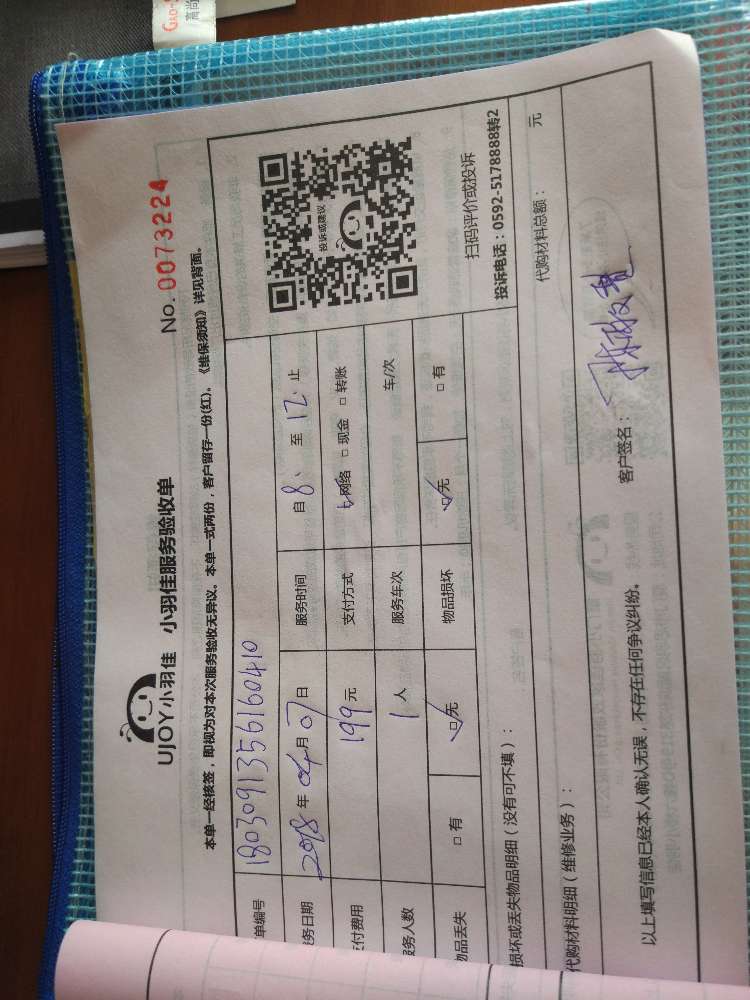 UJOY小羽佳 小羽佳服务验收单
No. 0073224
本单一经核签，即视为对本次服务验收无异议。本单一式两份，客户留存一份(红)。《维保须知》详见背面。
单编号 18030913561604 10
务日期 2018 年 04 月 07 日 服务时间 自 8 、 至 12 . 止
付费用 199 元 支付方式 网络 □ 现金 □ 转账
务人数 1 人 服务车次 车/次
物品丢失 □ 有 □ 无 物品损坏 □ 无 □ 有
投诉或建议
扫码评价或投诉
投诉电话：0592-5178888转2
损坏或丢失物品明细（没有可不填）：
代购材料明细（维修业务）：
代购材料总额： 元
以上填写信息已经本人确认无误，不存在任何争议纠纷。
客户签名：